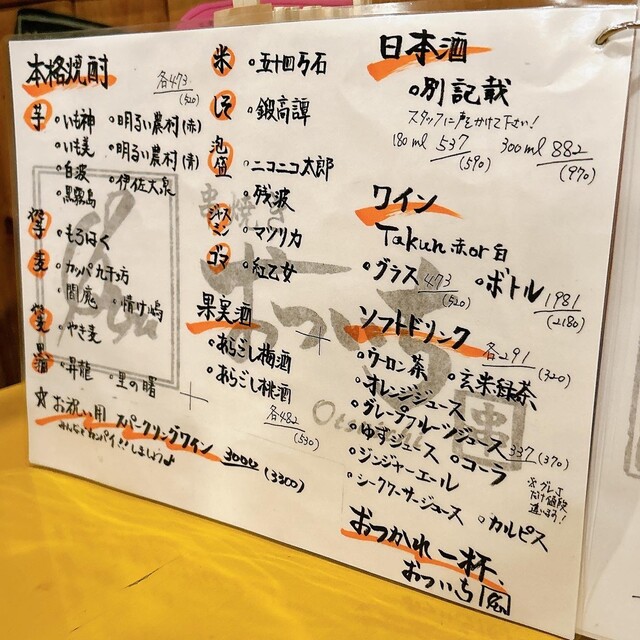 本格焼酎 各473
(520)
芋
・いも神 ・明るい農村(赤)
・いも美 ・明るい農村(青)
・白波 ・伊佐大泉
・黒霧島
・もろはく
麦
・カッパ九千坊
・閻魔 ・情け嶋
・やき麦
黒糖
・昇龍 ・里の曙
☆お祝い用 スパークリングワイン
みんなでカンパイ!!しましょう♪ 3000
(3300)
米 ・五十四万石
しそ ・鍛高譚
泡盛 ・ニコニコ太郎
・残波
ジャスミン ・マツリカ
ゴマ ・紅乙女
果実酒
・あらごし梅酒
・あらごし桃酒
各482
(530)
日本酒
・別記載
スタッフに声をかけて下さい!
180ml 537 300ml 882
(590) (970)
ワイン
Takun 赤or白
・グラス 473 ・ボトル 1981
(520) (2180)
ソフトドリンク 各291
(320)
・ウーロン茶 ・玄米緑茶
・オレンジジュース
・グレープフルーツジュース 337 (370)
・ゆずジュース ・コーラ
・ジンジャーエール
・シークワーサージュース ・カルピス
※グレJ
だけ値段
違います!
おつかれ一杯、
おついち
串焼き
おついち